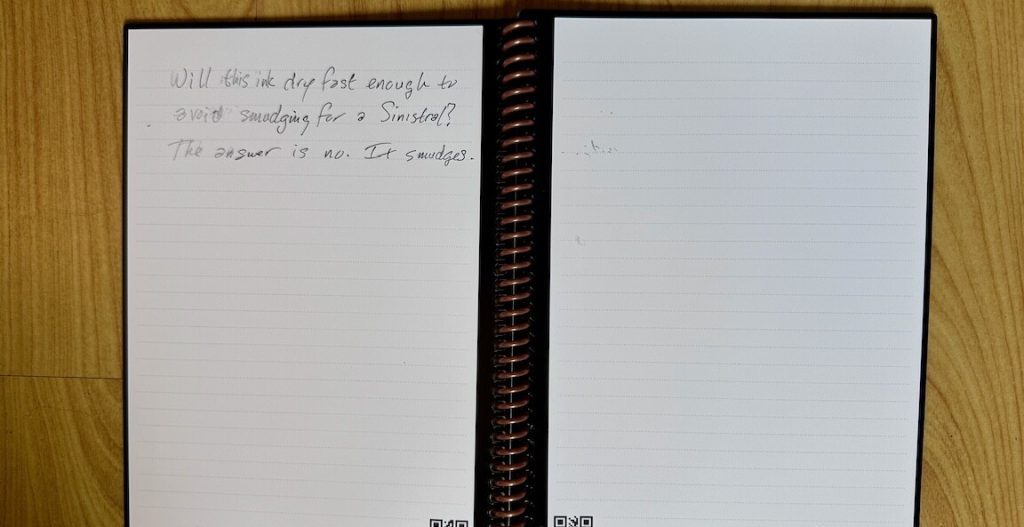 Will this ink dry fast enough to
avoid smudging for a Sinistral?
The answer is no. It smudges.